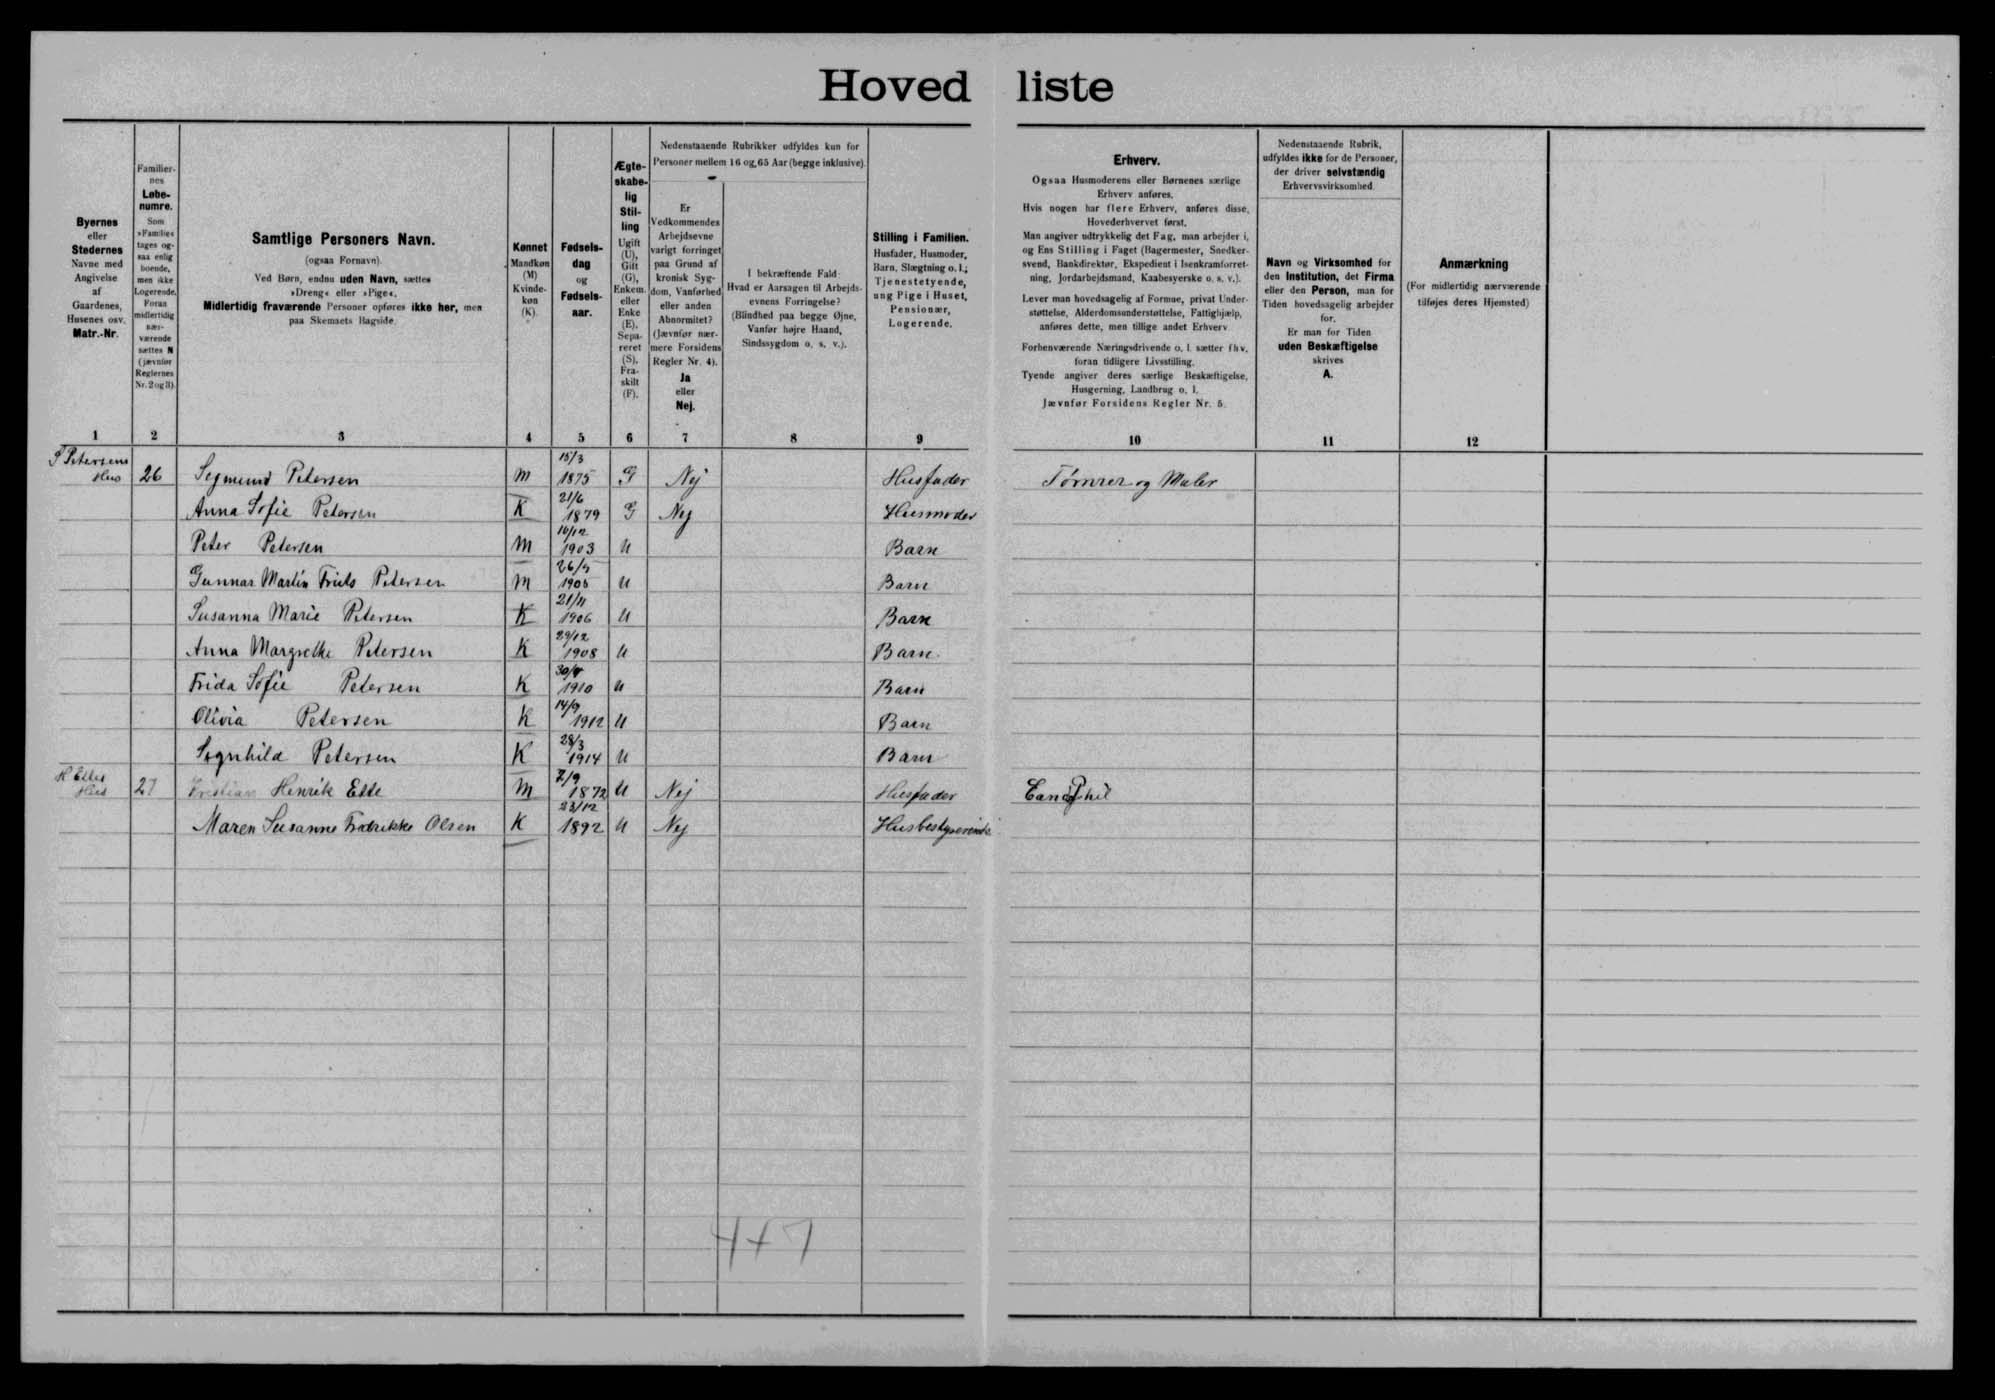 Hoved liste
Byernes
eller
Stedernes
Navne med
Angivelse
af
Gaardenes,
Husenes osv.
Matr.-Nr.
Familier-
nes
Løbe-
numre.
Som
»Familie«
tages og-
saa enlig
boende,
men ikke
Logerende.
Foran
midlertidig
nær-
værende
sættes N
(jævnfør
Reglernes
Nr. 2 og 3).
Samtlige Personers Navn.
(ogsaa Fornavn).
Ved Børn, endnu uden Navn, sættes
»Dreng« eller »Pige«.
Midlertidig fraværende Personer opføres ikke her, men
paa Skemaets Bagside.
Kønnet
Mandkøn
(M)
Kvinde-
køn
(K).
Fødsels-
dag
og
Fødsels-
aar.
Ægte-
skabe-
lig
Stil-
ling
Ugift
(U),
Gift
(G),
Enkem.
eller
Enke
(E),
Sepa-
reret
(S),
Fra-
skilt
(F).
Nedenstaaende Rubrikker udfyldes kun for
Personer mellem 16 og 65 Aar (begge inklusive).
Er
Vedkommendes
Arbejdsevne
varigt forringet
paa Grund af
kronisk Syg-
dom, Vanførhed
eller anden
Abnormitet?
(Jævnfør nær-
mere Forsidens
Regler Nr. 4).
Ja
eller
Nej.
I bekræftende Fald:
Hvad er Aarsagen til Arbejds-
evnens Forringelse?
(Blindhed paa begge Øjne,
Vanfør højre Haand,
Sindssygdom o. s. v.).
Stilling i Familien.
Husfader, Husmoder,
Barn, Slægtning o. l.;
Tjenestetyende,
ung Pige i Huset,
Pensionær,
Logerende.
Erhverv.
Ogsaa Husmoderens eller Børnenes særlige
Erhverv anføres.
Hvis nogen har flere Erhverv, anføres disse,
Hovederhvervet først.
Man angiver udtrykkelig det Fag, man arbejder i,
og Ens Stilling i Faget (Bagermester, Snedker-
svend, Bankdirektør, Ekspedient i Isenkramforret-
ning, Jordarbejdsmand, Kaabesyerske o. s. v.).
Lever man hovedsagelig af Formue, privat Under-
støttelse, Alderdomsunderstøttelse, Fattighjælp,
anføres dette, men tillige andet Erhverv.
Forhenværende Næringsdrivende o. l. sætter fhv.
foran tidligere Livsstilling.
Tyende angiver deres særlige Beskæftigelse,
Husgerning, Landbrug o. l.
Jævnfør Forsidens Regler Nr. 5.
Nedenstaaende Rubrik,
udfyldes ikke for de Personer,
der driver selvstændig
Erhvervsvirksomhed.
Navn og Virksomhed for
den Institution, det Firma
eller den Person, man for
Tiden hovedsagelig arbejder
for.
Er man for Tiden
uden Beskæftigelse
skrives
A.
Anmærkning
(For midlertidig nærværende
tilføjes deres Hjemsted)
1 2 3 4 5 6 7 8 9 10 11 12
S Petersens
Hus 26 Segmund Petersen M 15/3 1875 G Nej Husfader Tømrer og Maler
Anna Sofie Petersen K 21/6 1879 G Nej Husmoder
Peter Petersen M 1903 U Barn
Gunnar Martin Frits Petersen M 1905 U Barn
Susanna Marie Petersen K 21/11 1906 U Barn
Anna Margrethe Petersen K 29/12 1908 U Barn
Frida Sofie Petersen K 1910 U Barn
Olivia Petersen K 14/9 1912 U Barn
Sognhild Petersen K 28/3 1914 U Barn
Hus 27 Kristian Henrik Elle M 7/9 1872 U Nej Husfader Cand Phil
Maren Susanne Fredrikke Olsen K 23/12 1892 U Nej Husbestyrerinde
4+7